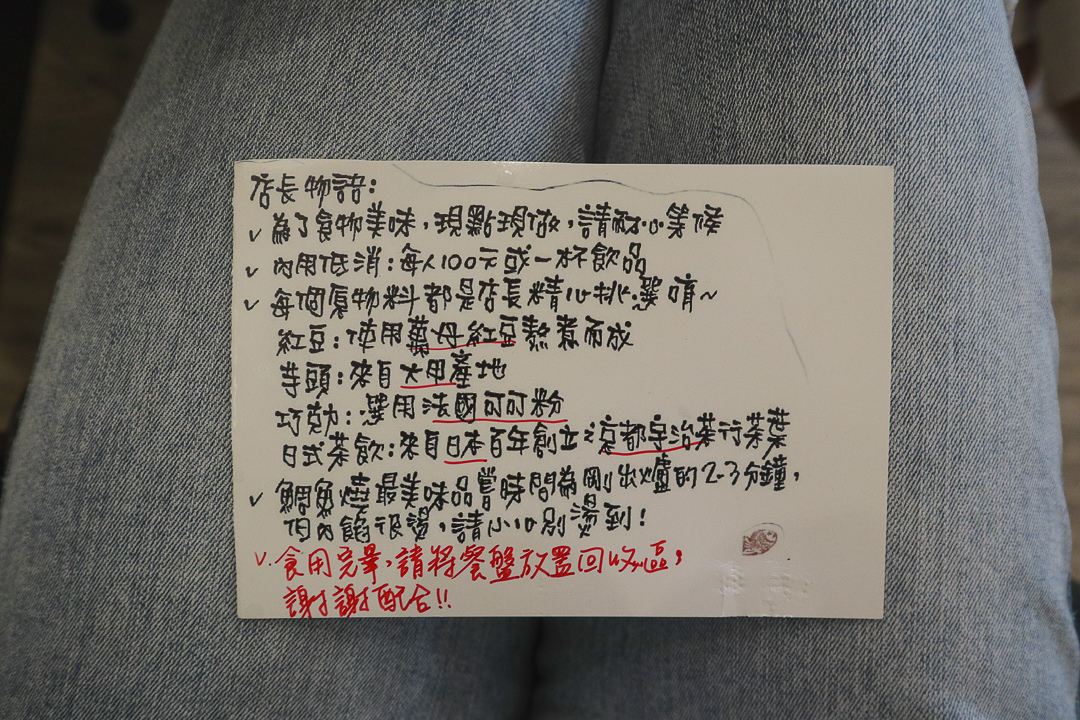 店長物語：
✓ 為了食物美味，現點現做，請耐心等候
✓ 內用低消：每人100元或一杯飲品
✓ 每個原物料都是店長精心挑選唷~
紅豆：使用薑母紅豆熬煮而成
芋頭：來自大甲產地
巧克力：選用法國可可粉
日式茶飲：來自日本百年創立之京都宇治茶行茶葉
✓ 鯛魚燒最美味品嘗時間為剛出爐的2-3分鐘，
但內餡很燙，請小心別燙到！
✓. 食用完畢，請將餐盤放置回收區，
謝謝配合!!